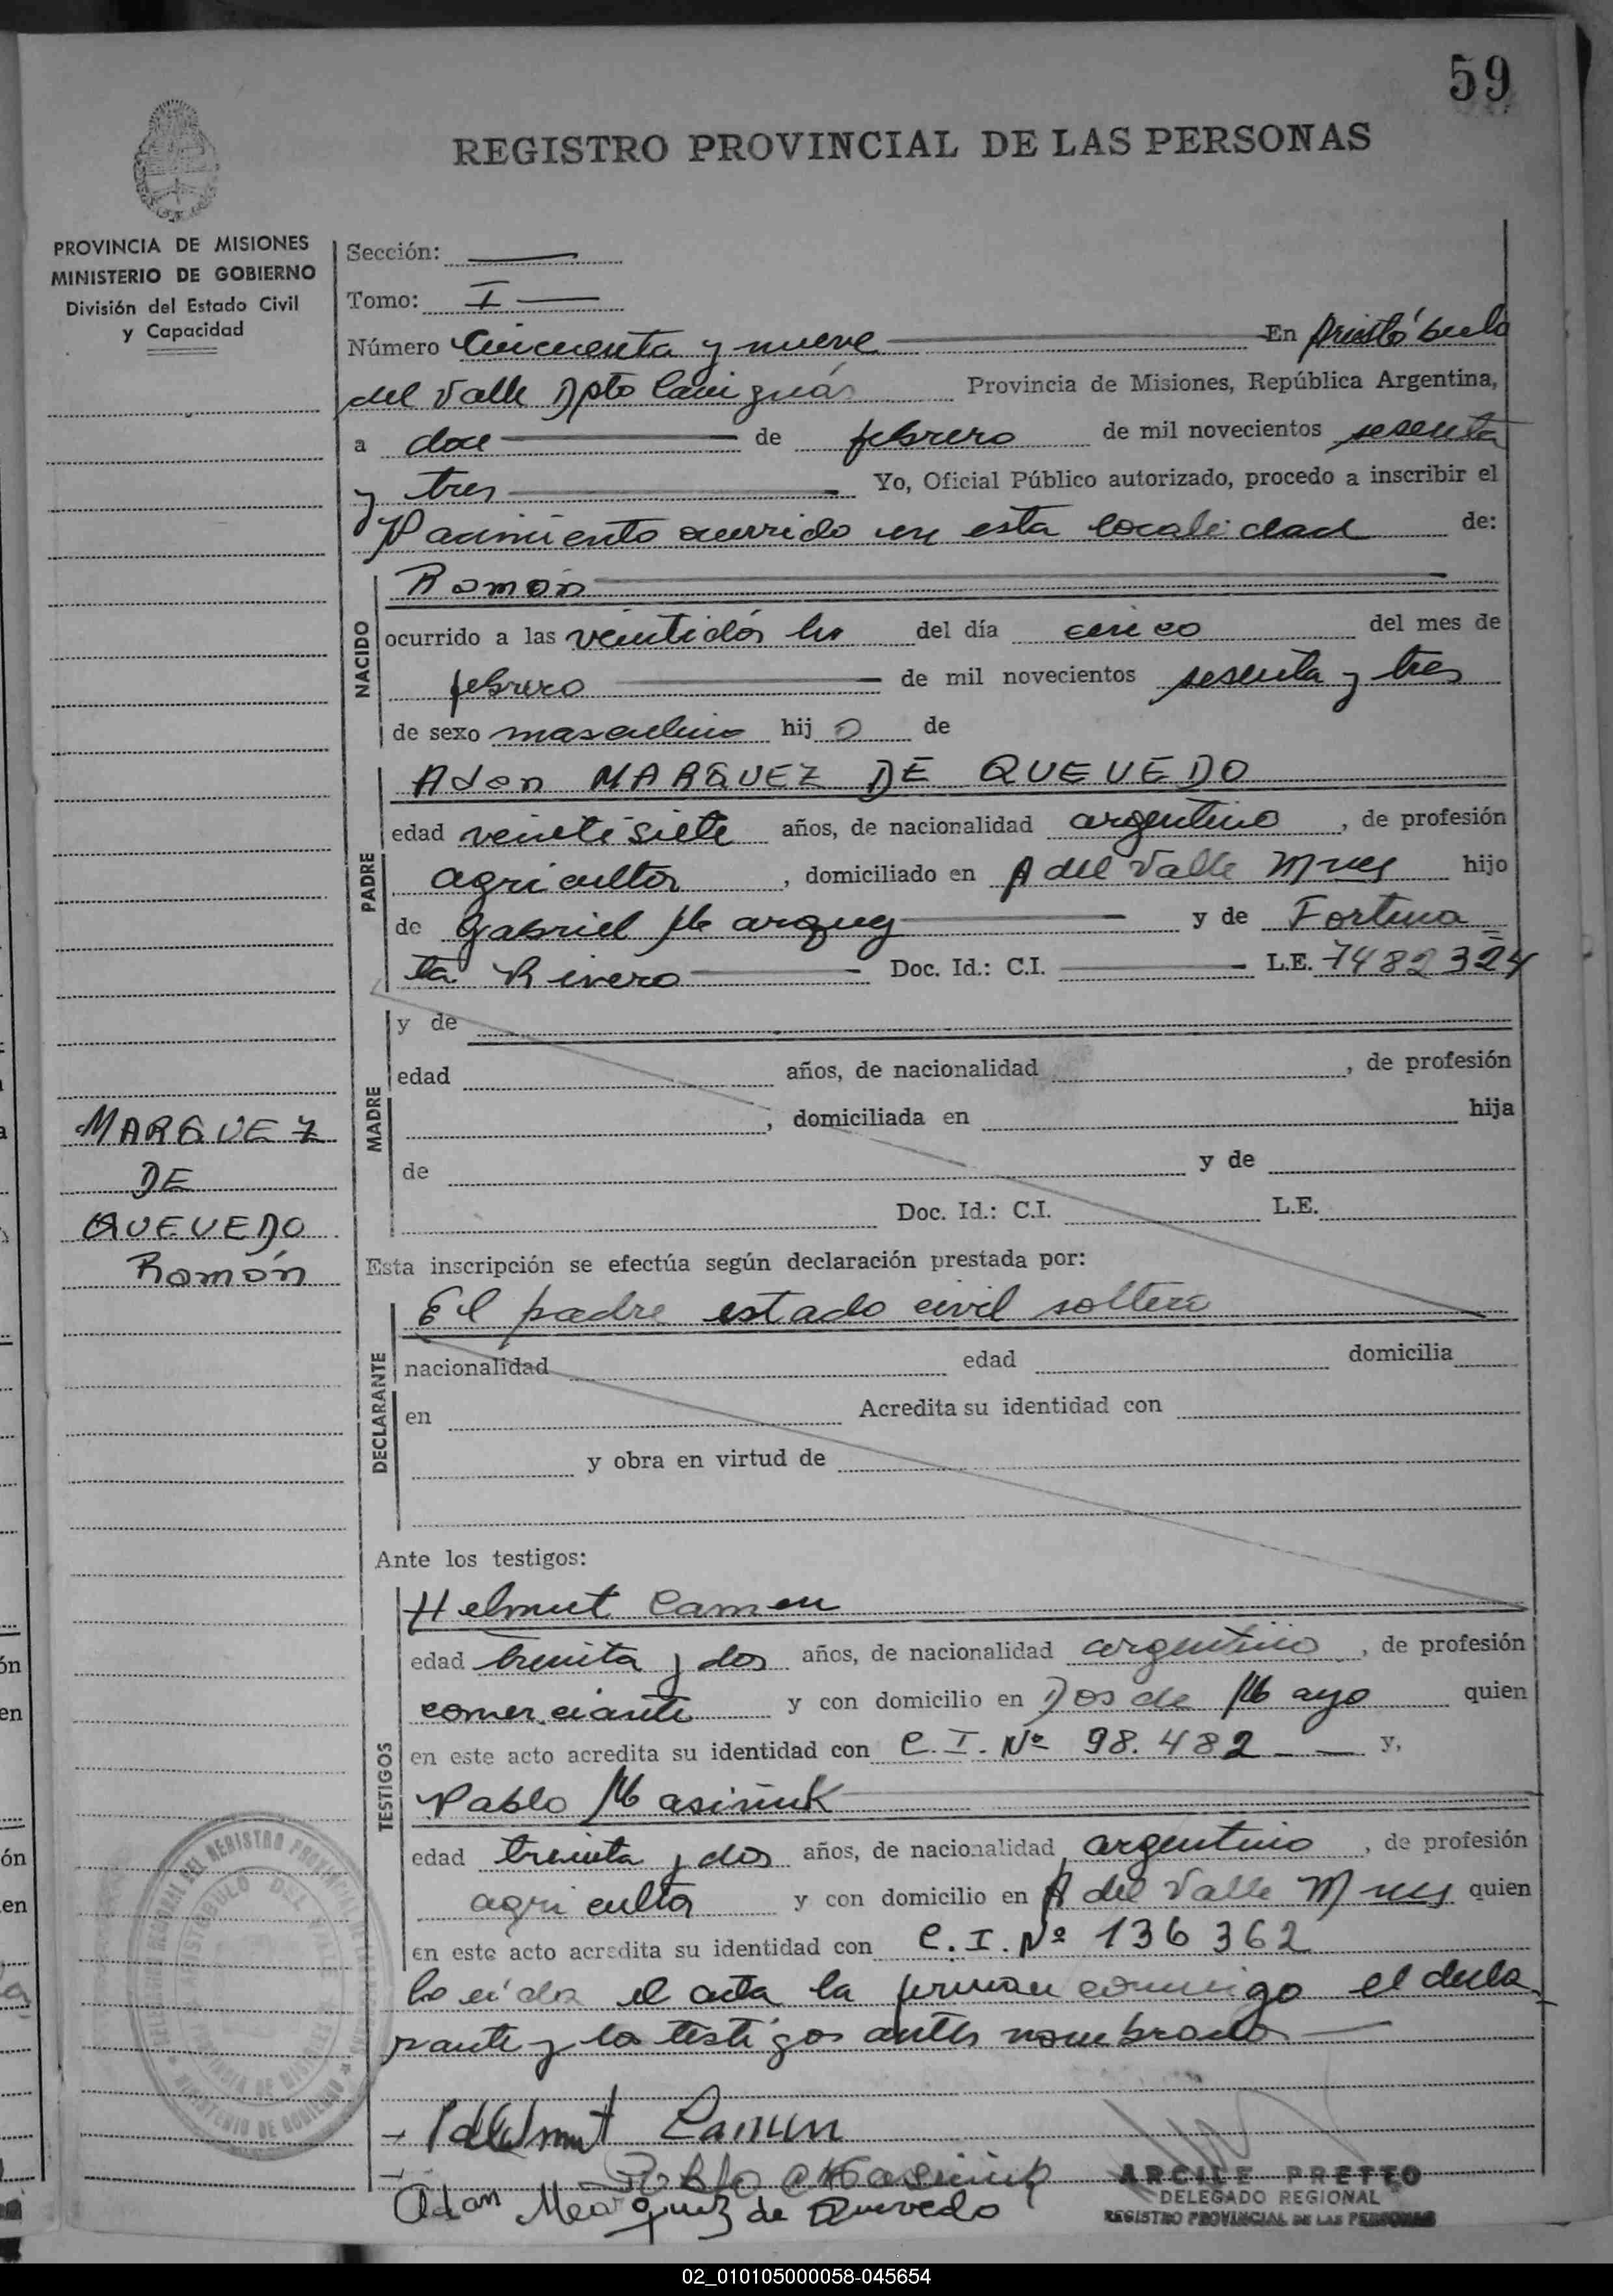 59
REGISTRO PROVINCIAL DE LAS PERSONAS
PROVINCIA DE MISIONES
MINISTERIO DE GOBIERNO
División del Estado Civil
y Capacidad
Sección:
Tomo: I
Número Cincuenta y nueve En Aristóbulo
del Valle Dpto Cainguás Provincia de Misiones, República Argentina,
a doce de febrero de mil novecientos sesenta
y tres Yo, Oficial Público autorizado, procedo a inscribir el
Nacimiento ocurrido en esta localidad de:
NACIDO
Ramón
ocurrido a las veintidós hs del día cinco del mes de
febrero de mil novecientos sesenta y tres
de sexo masculino hijo de
PADRE
Adan MARQUEZ DE QUEVEDO
edad veintisiete años, de nacionalidad argentino, de profesión
agricultor, domiciliado en A del Valle Mnes hijo
de Gabriel Marquez y de Fortuna=
ta Rivero Doc. Id.: C.I. L.E. 7482324
MADRE
y de
edad años, de nacionalidad, de profesión
, domiciliada en hija
de y de
Doc. Id.: C.I. L.E.
MARQUEZ
DE
QUEVEDO
Ramón
Esta inscripción se efectúa según declaración prestada por:
DECLARANTE
El padre estado civil soltero
nacionalidad edad domicilia
en Acredita su identidad con
y obra en virtud de
Ante los testigos:
TESTIGOS
Helmut Camen
edad treinta y dos años, de nacionalidad argentino, de profesión
comerciante y con domicilio en Dos de Mayo quien
en este acto acredita su identidad con C.I. Nº 98.482 y,
Pablo Masiñuk
edad treinta y dos años, de nacionalidad argentino, de profesión
agricultor y con domicilio en A del Valle Mnes quien
en este acto acredita su identidad con C.I. Nº 136362
Leida el acta la firman conmigo el decla
rante y lo testigos antes nombrados
Helmut Camen
Pablo Masiñuk
Adan Marquez de Quevedo
PRETTO
DELEGADO REGIONAL
REGISTRO PROVINCIAL DE LAS PERSONAS
ARISTOBULO DEL VALLE
MINISTERIO DE GOBIERNO
02_010105000058-045654